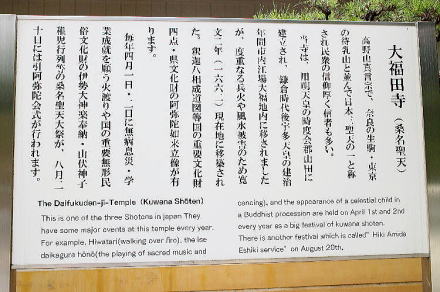 大福田寺（桑名聖天）
高野山真言宗で、奈良の生駒・東京
の待乳山と並んで日本三聖天の一と称
され民衆の信仰厚く信者も多い。
当寺は、用明天皇の時度会郡山田に
建立され、鎌倉時代後宇多天皇の建治
年間市内江場大福地内に移されました
が、度重なる兵火や風水被害のため寛
文二年（一六六二）現在地に移築され
た。釈迦八相成道図等四の重要文化財
四点・県文化財の阿弥陀如来立像が有
ります。
毎年四月一日・二日に無病息災・学
業成就を願う火渡りや国の重要無形民
俗文化財の伊勢大神楽奉納・山伏神子
稚児行列等の桑名聖天大祭が、八月二
十日には引阿弥陀会式が行われます。
The Daifukuden-ji-Temple (Kuwana Shōten)
This is one of the three Shotens in japan They
have some major events at this temple every year.
For example, Hiwatari(walking over firo), the ise
daikagura hōnō(the playing of sacred music and
cancing), and the appearance of a celestial child in
a Buddhist procession are held on April 1st and 2nd
every year as a big festival of kuwana shoten.
There is another festival which is called" Hiki Amida
Eshiki service" on August 20th.